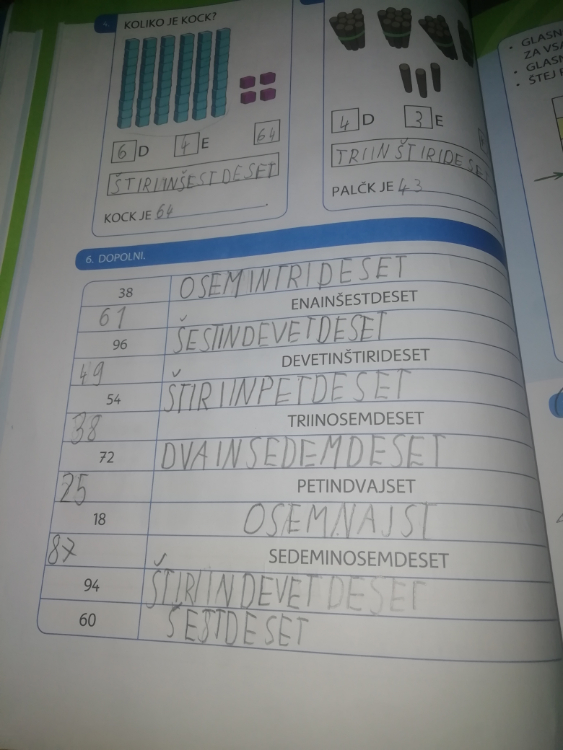 KOLIKO JE KOCK?
6 D 4 E 64
ŠTIRIINŠESTDESET
KOCK JE 64
4 D 3 E
TRIINŠTIRIDESET
PALČK JE 43
6. DOPOLNI.
38 OSEMINTRIDESET
61 ENAINŠESTDESET
96 ŠESTINDEVETDESET
49 DEVETINŠTIRIDESET
54 ŠTIRIINPETDESET
38 TRIINOSEMDESET
72 DVAINSEDEMDESET
25 PETINDVAJSET
18 OSEMNAJST
87 SEDEMINOSEMDESET
94 ŠTIRIINDEVETDESET
60 ŠESTDESET
• GLASN
ZA VSA
• GLASN
• ŠTEJ